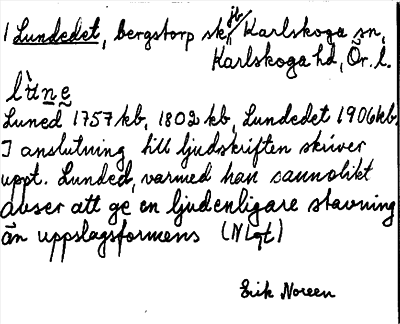 1 Lundedet, bergstorp sk, Karlskoga sn,
Karlskoga hd, Ör. l.
Luned 1757 kb, 1802 kb, Lundedet 1906 kb.
I anslutning till ljudskriften skriver
uppt. Lunded, varmed han sannolikt
avser att ge en ljudenligare stavning
än uppslagsformens (NLgt)
Erik Noreen